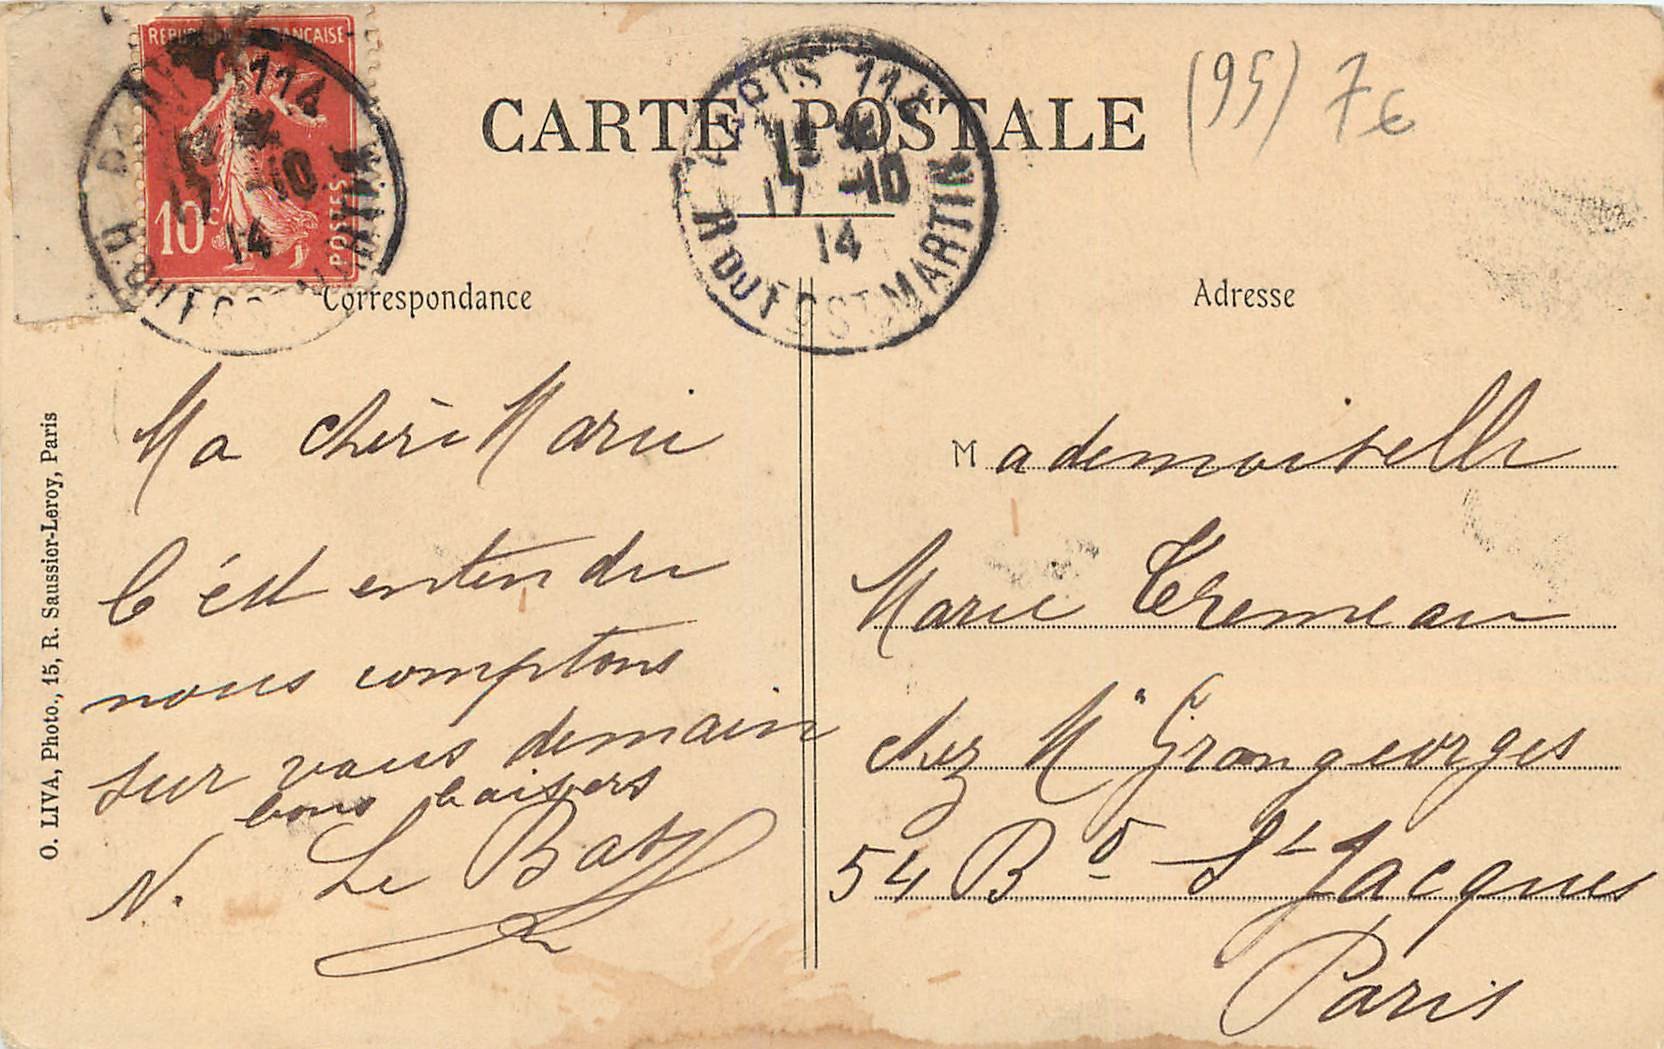 RÉPUBLIQUE FRANÇAISE
10c
POSTES
CARTE POSTALE
(95) 7€
PARIS 114
17 -10
14
R DU FG ST MARTIN
Correspondance
Adresse
Ma chère Marie
C'est entendu
nous comptons
sur vous demain
bons baisers
N. Le Batz
Mademoiselle
Marie Tremeau
chez Mr Grangeorges
54 Bd St Jacques
Paris
O. LIVA, Photo., 15, R. Saussier-Leroy, Paris